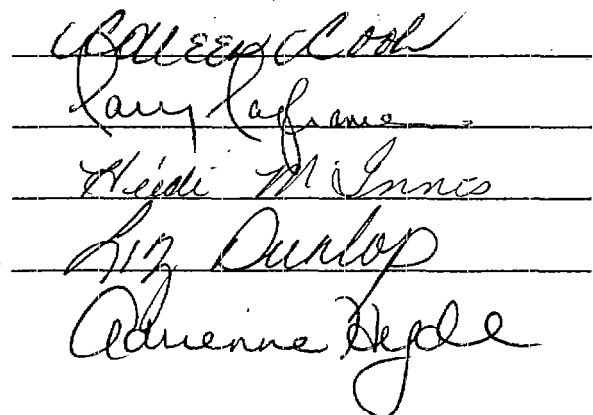 Coleen Cook
Larry Laframe
Heidi McInnes
Liz Dunlop
Adrienne Hegde